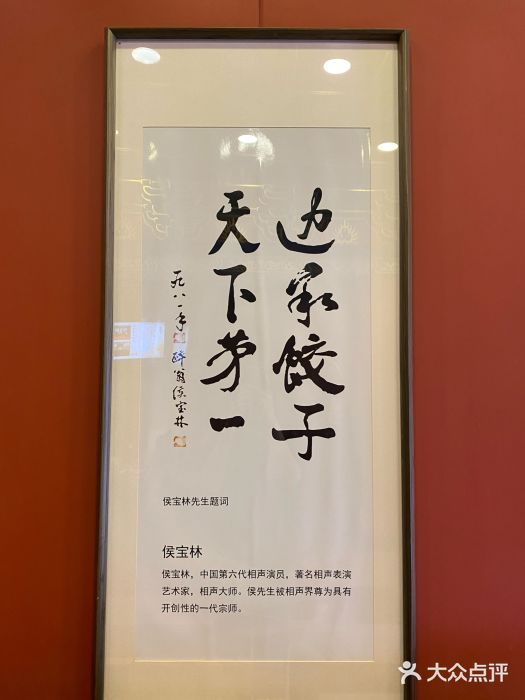 边家饺子
天下第一
一九八一年 醉翁侯宝林
侯宝林先生题词
侯宝林
侯宝林，中国第六代相声演员，著名相声表演
艺术家，相声大师。侯先生被相声界尊为具有
开创性的一代宗师。
大众点评